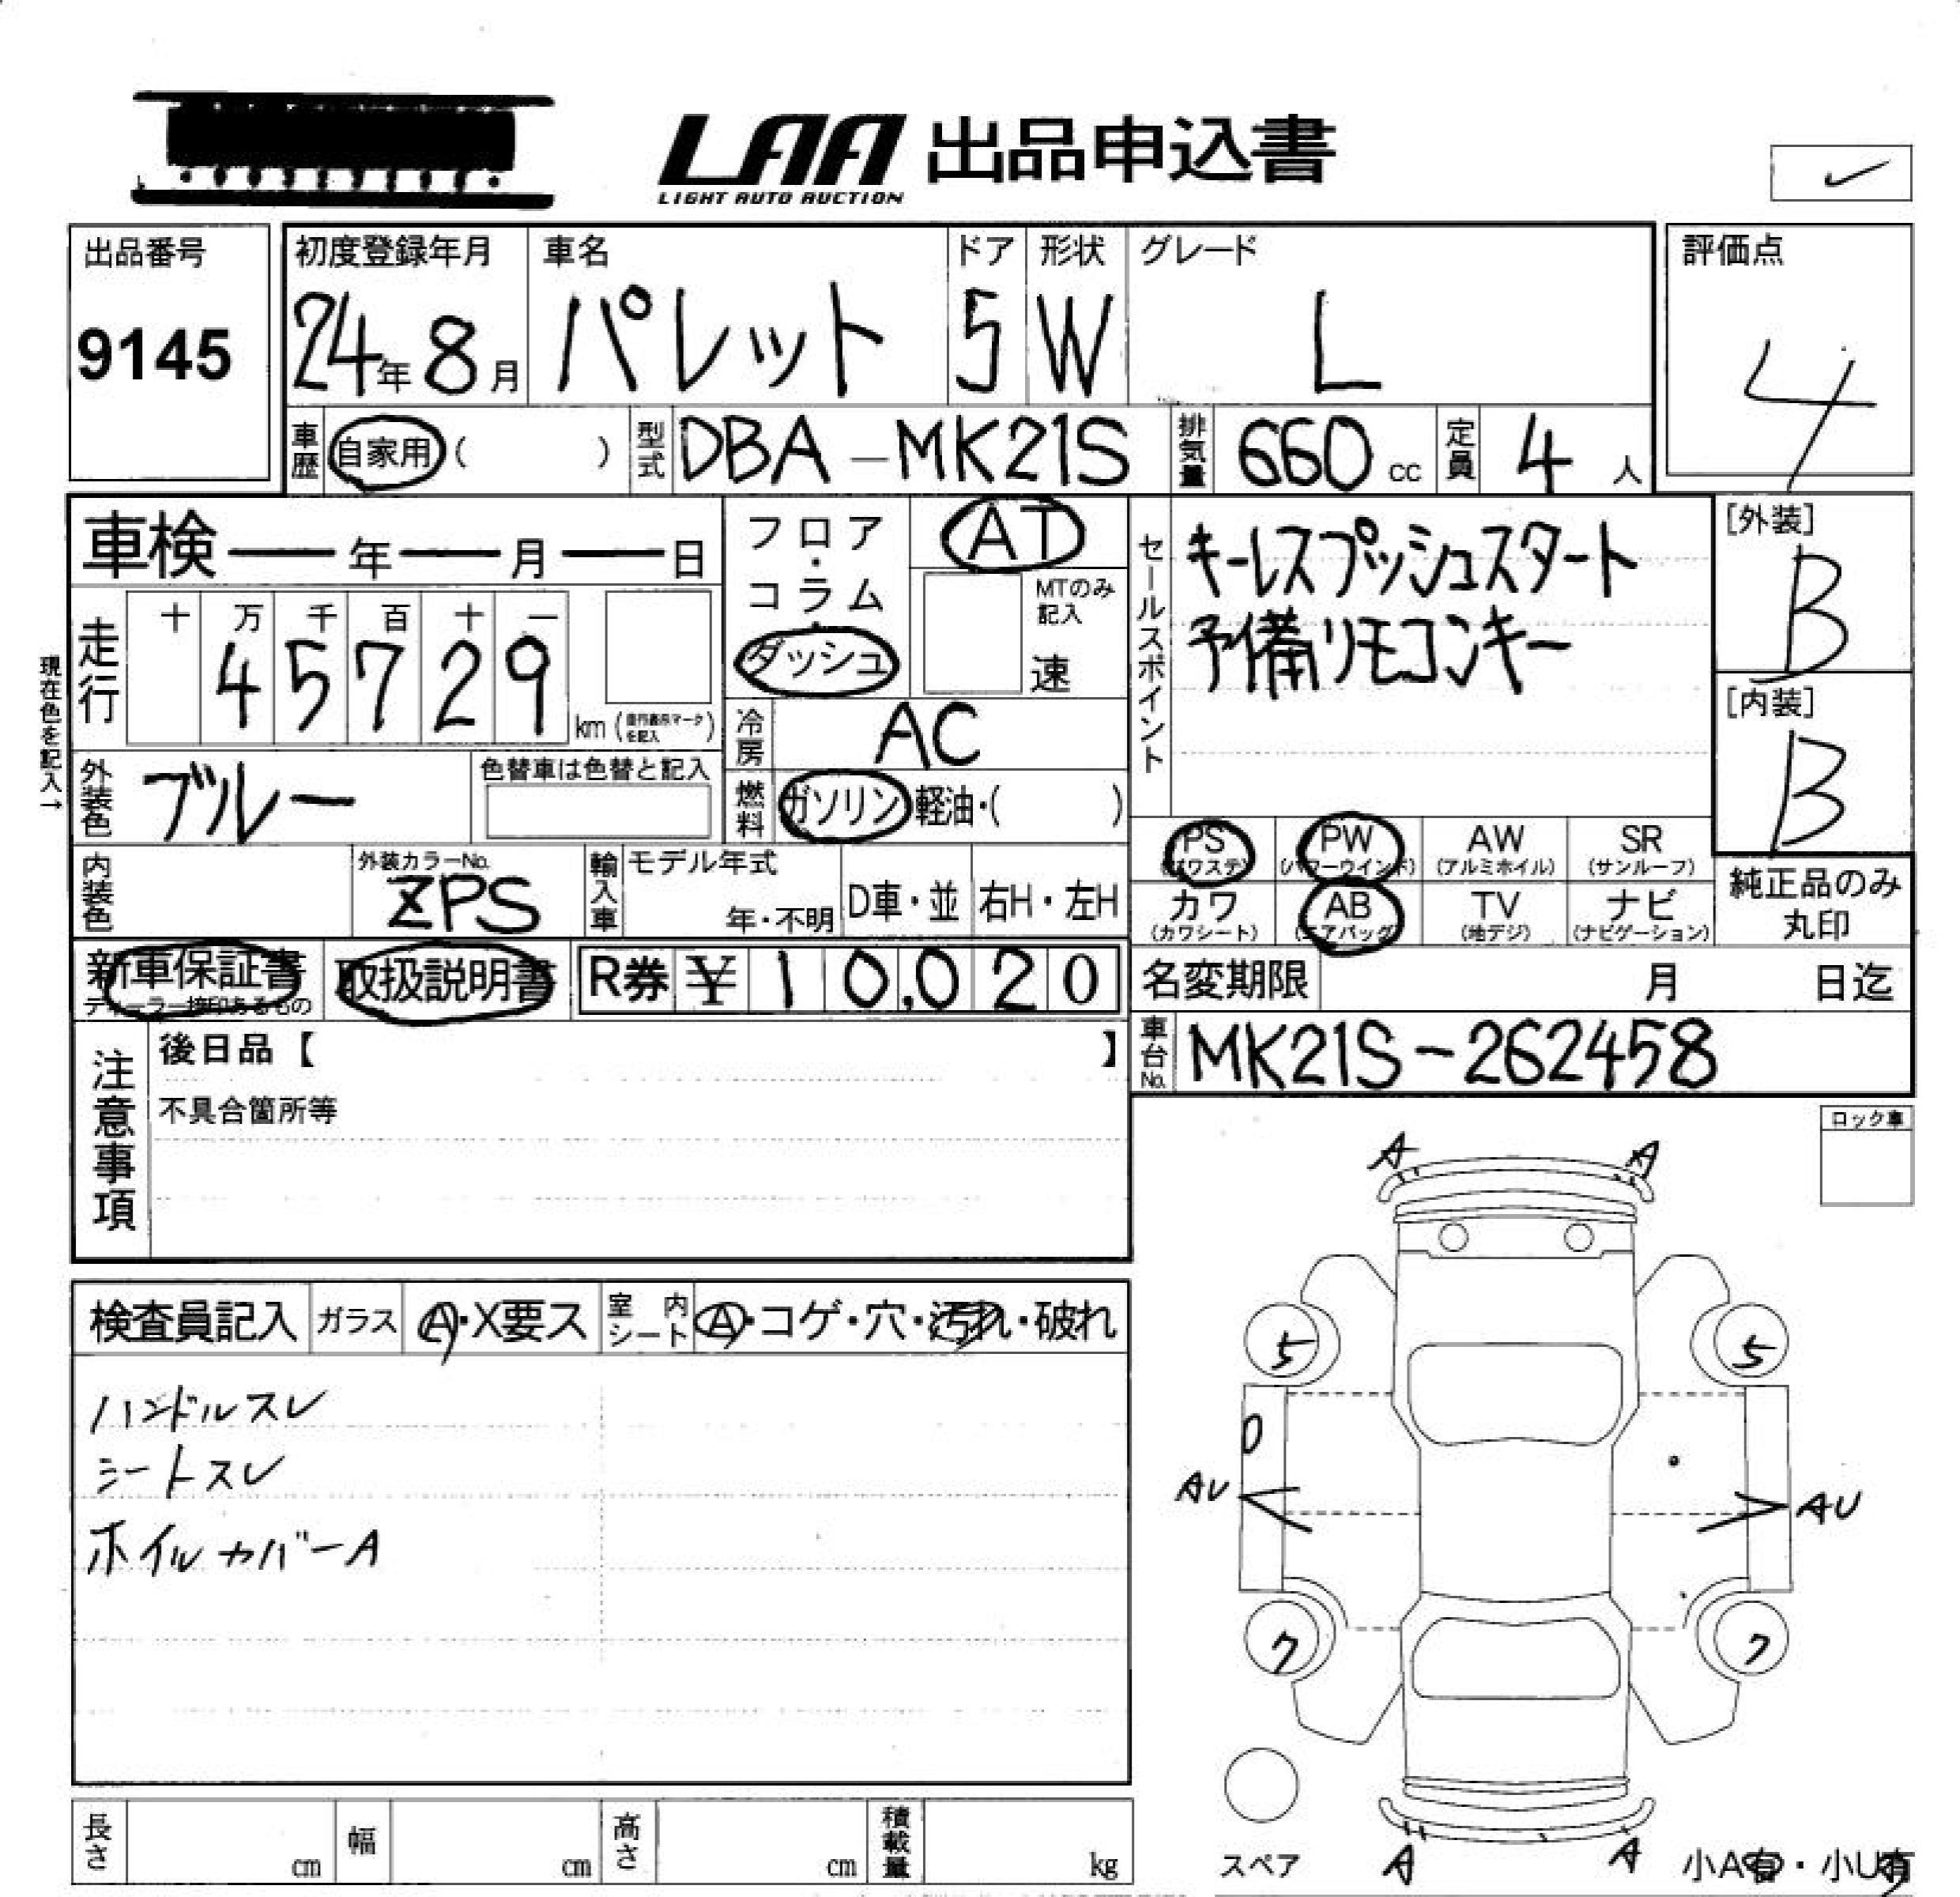 LAA 出品申込書
LIGHT AUTO AUCTION
出品番号
9145
初度登録年月
24年 8月
車名
パレット
ドア
5
形状
W
グレード
L
評価点
4
車歴
自家用 ( )
型式
DBA-MK21S
排気量
660 cc
定員
4 人
車検 — 年 — 月 — 日
フロア・コラム
ダッシュ
AT
MTのみ記入
速
セールスポイント
キーレスプッシュスタート
予備リモコンキー
[外装]
B
[内装]
B
現在色を記入→
走行
十 万 千 百 十 一
4 5 7 2 9
km
冷房
AC
外装色
ブルー
色替車は色替と記入
燃料
ガソリン・軽油・( )
PS (パワステ)
PW (パワーウインド)
AW (アルミホイル)
SR (サンルーフ)
カワ (カワシート)
AB (エアバッグ)
TV (地デジ)
ナビ (ナビゲーション)
純正品のみ
丸印
内装色
外装カラーNo.
ZPS
輸入車
モデル年式
年・不明
D車・並
右H・左H
新車保証書
ディーラー捺印あるもの
取扱説明書
R券 ¥ 1 0,0 2 0
名変期限
月 日迄
注意事項
後日品【 】
不具合箇所等
車台No.
MK21S-262458
ロック車
検査員記入
ガラス
A・X要ス
室内シート
A・コゲ・穴・汚れ・破れ
ハンドルスレ
シートスレ
ホイルカバーA
A A
5 5
AU AU
7 7
A A
スペア
小A有・小U有
長さ cm
幅 cm
高さ cm
積載量 kg